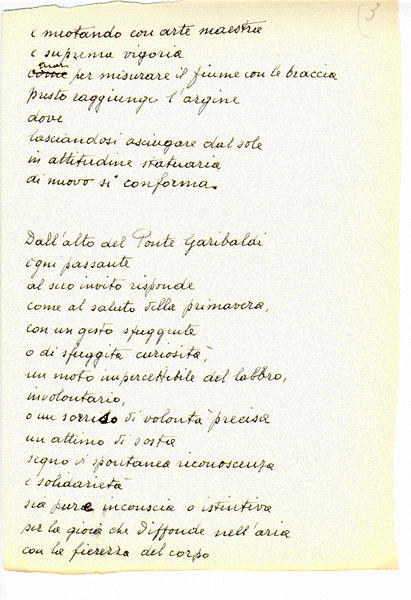 3
e nuotando con arte maestra
e suprema vigoria
quasi
come per misurare il fiume con le braccia
presto raggiunge l'argine
dove
lasciandosi asciugare dal sole
in attitudine statuaria
di nuovo si conforma.
Dall'alto del Ponte Garibaldi
ogni passante
al suo invito risponde
come al saluto della primavera,
con un gesto sfuggente
o di sfuggita curiosità,
un moto impercettibile del labbro,
involontario,
o un sorriso di volontà precisa
un attimo di sosta
segno di spontanea riconoscenza
e solidarietà
sia pure inconscia o istintiva
per la gioia che diffonde nell'aria
con la fierezza del corpo